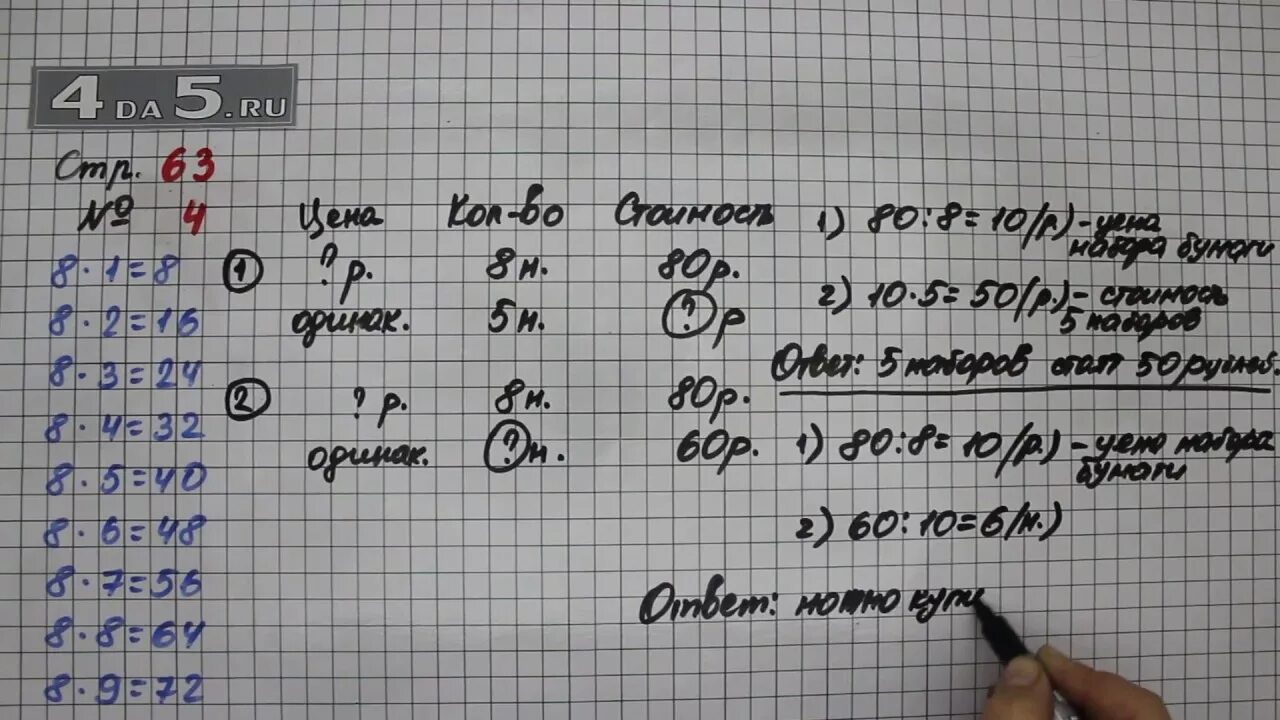 4DA5.RU
Стр. 63
№ 4
8 · 1 = 8
8 · 2 = 16
8 · 3 = 24
8 · 4 = 32
8 · 5 = 40
8 · 6 = 48
8 · 7 = 56
8 · 8 = 64
8 · 9 = 72
Цена Кол-во Стоимость
1 ? р. 8 н. 80 р.
одинак. 5 н. ? р
2 ? р. 8 н. 80 р.
одинак. ? н. 60 р.
1) 80 : 8 = 10 (р.) - цена
набора бумаги
2) 10 · 5 = 50 (р.) - стоимость
5 наборов
Ответ: 5 наборов стоят 50 рублей.
1) 80 : 8 = 10 (р.) - цена набора
бумаги
2) 60 : 10 = 6 (н.)
Ответ: можно купи